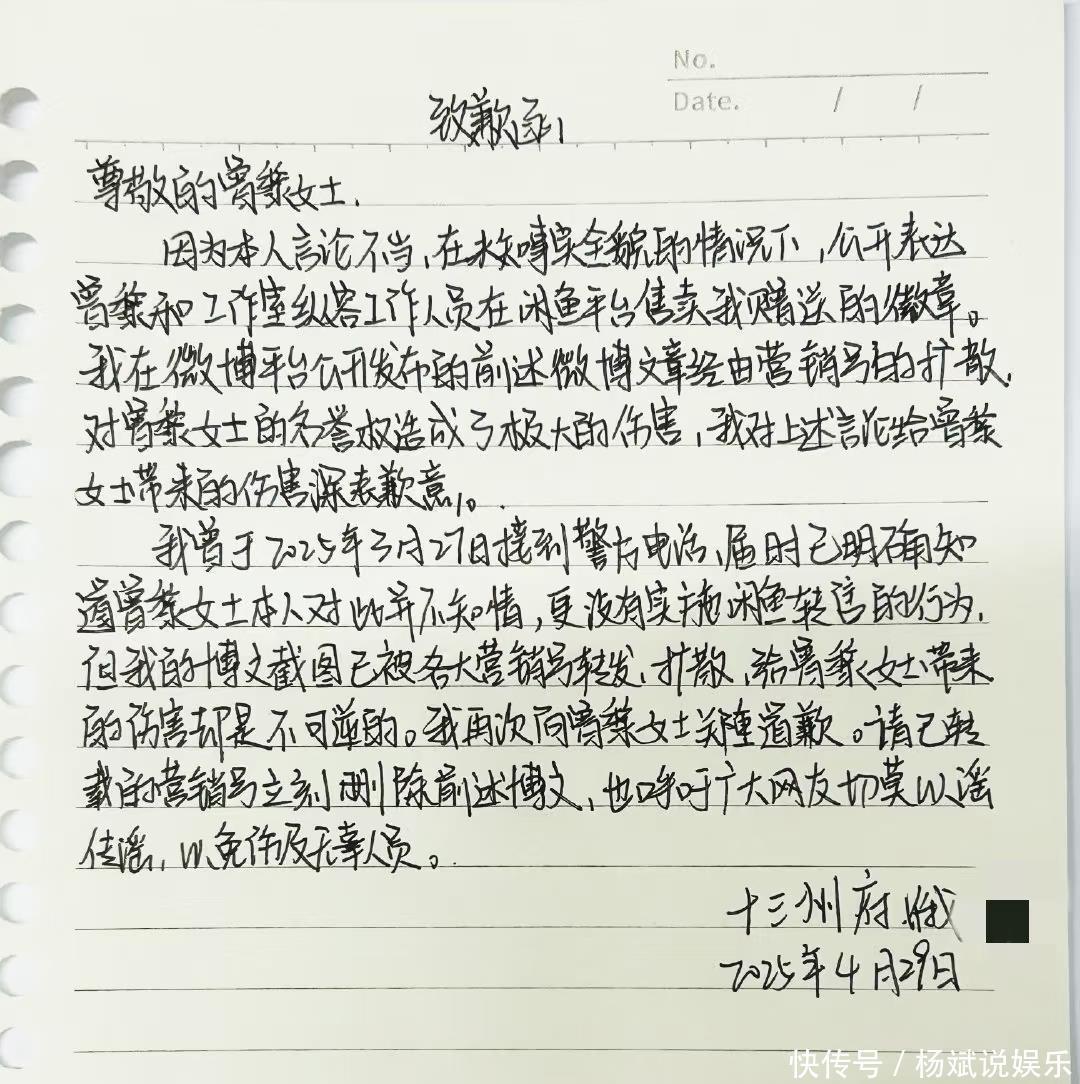 No.
Date. / /
致歉函
尊敬的曾黎女士.
因为本人言论不当,在未知事实全貌的情况下,公开表达
曾黎和工作室纵容工作人员在闲鱼平台售卖我赠送的徽章。
我在微博平台公开发布的前述微博文章经由营销号的扩散,
对曾黎女士的名誉权造成了极大的伤害,我对上述言论给曾黎
女士带来的伤害深表歉意。
我曾于2025年3月27日接到警方电话,届时已明确知
道曾黎女士本人对此并不知情,更没有实施闲鱼转卖的行为,
但我的博文截图已被各大营销号转发、扩散,给曾黎女士带来
的伤害却是不可逆的。我再次向曾黎女士郑重道歉。请已转
载的营销号立刻删除前述博文,也呼吁广大网友切莫以谣
传谣,以免伤及无辜人员。
十三州府
2025年4月29日
快传号 / 杨斌说娱乐